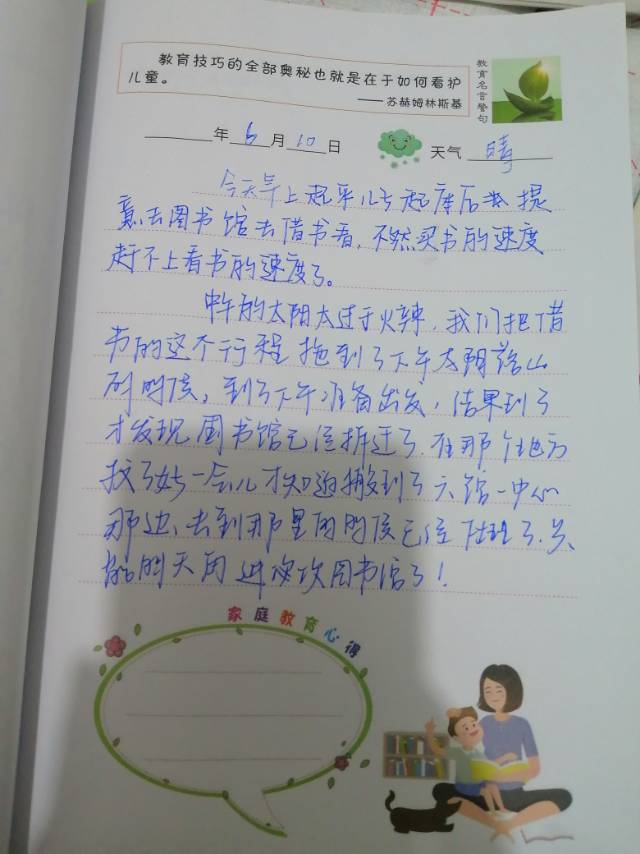 教育技巧的全部奥秘也就是在于如何看护
儿童。
——苏赫姆林斯基
教育名言警句
年 6 月 10 日
天气 晴
今天早上起来儿子起床后 提
去图书馆去借书看，不然买书的速度
赶不上看书的速度了。
中午的太阳太过于火辣，我们把借
书的这个行程拖到了下午太阳落山
的时候，到了下午准备出发，结果到了
才发现图书馆已经拆迁了，在那个地方
找了好一会儿才知道搬到了六馆一中心
那边、去到那里的时候已经 了，只
能明天再 图书馆了！
家庭教育心得